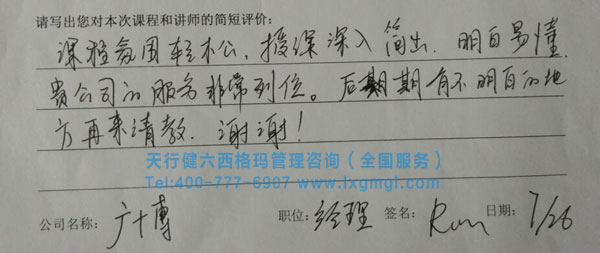 请写出您对本次课程和讲师的简短评价:
课程氛围轻松, 授课深入简出, 明白易懂.
贵公司的服务非常到位。后期有不明白的地
方再来请教. 谢谢!
天行健六西格玛管理咨询（全国服务）
Tel:400-777-6907 www.lxgmgl.com
公司名称: 职位: 经理 签名: 日期: 7/26